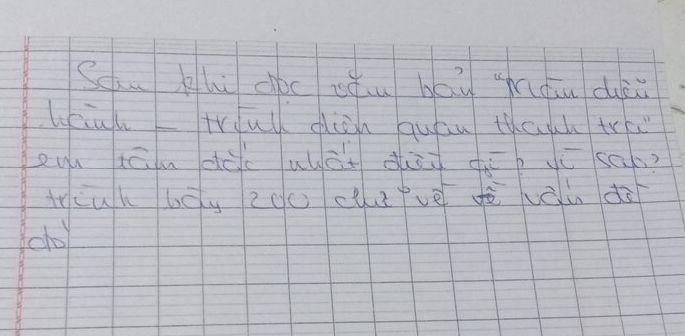 Sau khi đọc văn bản "màn diễu
hành - trình diện quan thanh tra"
em tâm đắc nhất điều gì? vì sao?
trình bày 200 chữ về vấn đề
đó